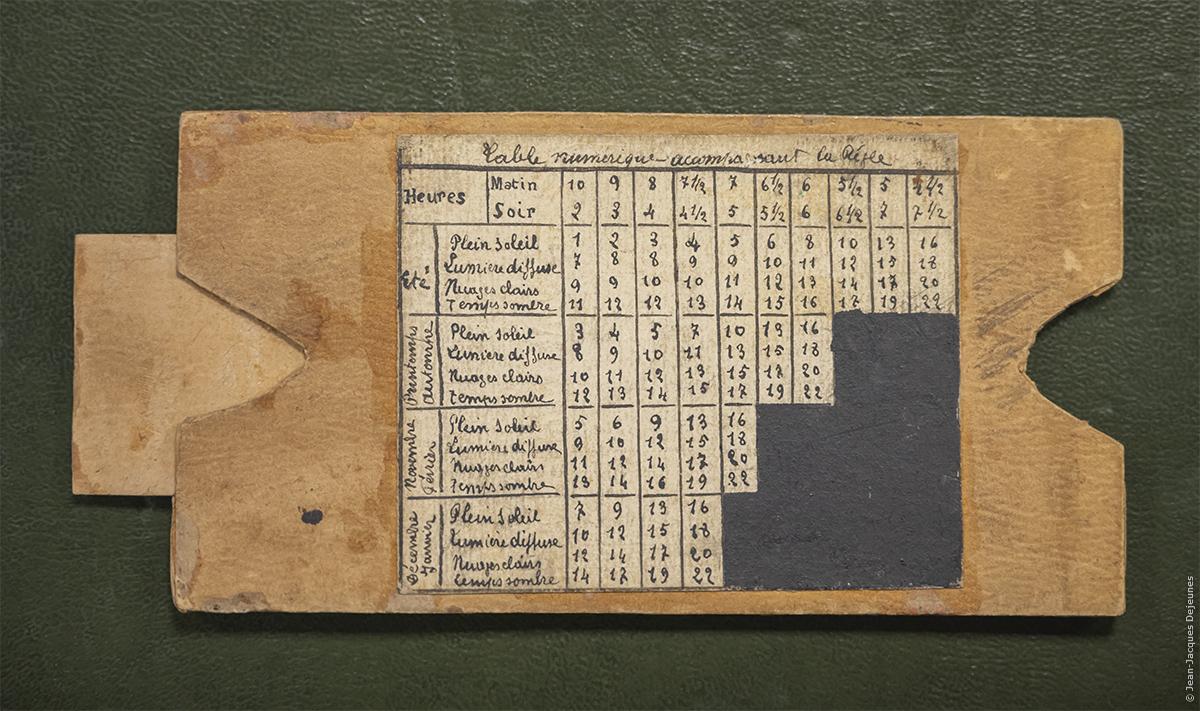 Table numerique acompa sant la Régle
Heures Matin 10 9 8 7 1/2 7 6 1/2 6 5 1/2 5 4 1/2
Soir 2 3 4 4 1/2 5 5 1/2 6 6 1/2 7 7 1/2
Eté Plein soleil 1 2 3 4 5 6 8 10 13 16
Lumiere diffuse 7 8 8 9 9 10 11 12 15 18
Nuages clairs 9 9 10 10 11 12 13 14 17 20
Temps sombre 11 12 12 13 14 15 16 17 19 22
Printemps automne Plein soleil 3 4 5 7 10 13 16
Lumiere diffuse 8 9 10 11 13 15 18
Nuages clairs 10 11 12 13 15 17 20
Temps sombre 12 13 14 15 17 19 22
Novembre février Plein soleil 5 6 9 13 16
Lumiere diffuse 9 10 12 15 18
Nuages clairs 11 12 14 17 20
Temps sombre 13 14 16 19 22
Décembre Janvier Plein Soleil 7 9 13 16
Lumière diffuse 10 12 15 18
Nuages clairs 12 14 17 20
temps sombre 14 17 19 22
© Jean-Jacques Dejeunes